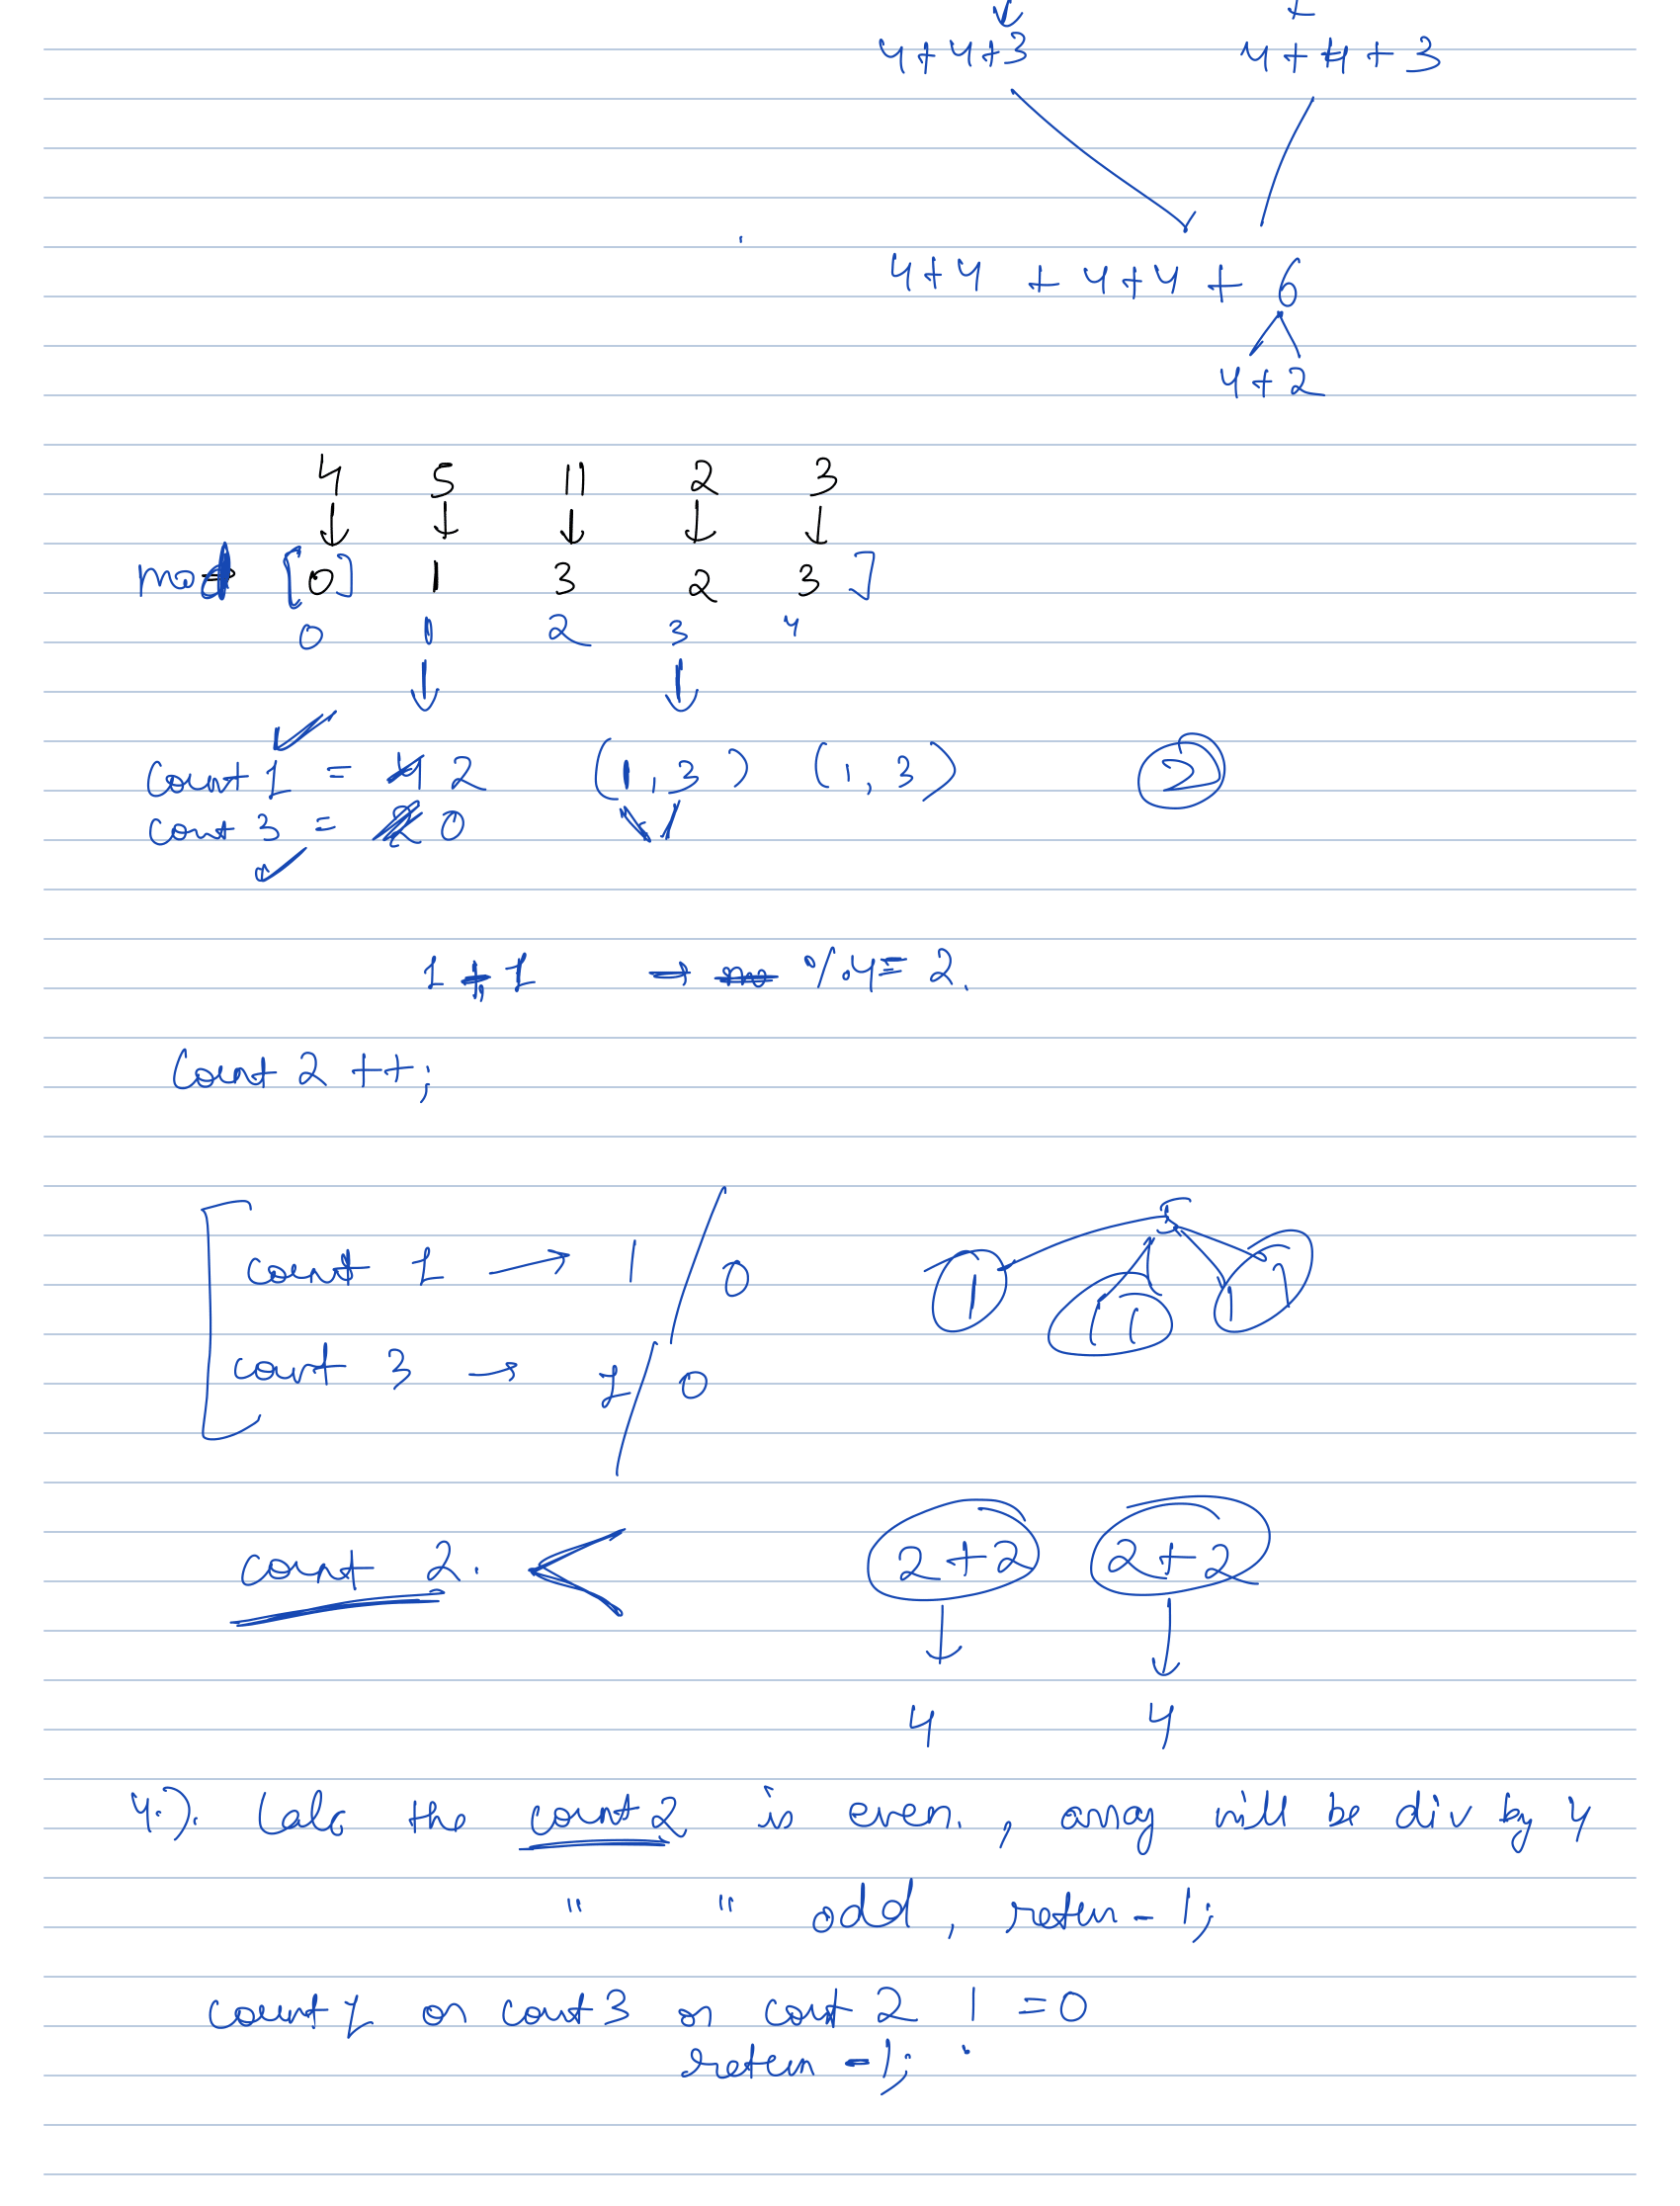 4+4+3 4+4+3
4+4 + 4+4 + 6
4+2
4 5 11 2 3
mod [0] 1 3 2 3 ]
0 1 2 3 4
count 1 = 4 2 (1,3) (1,3) 2
cont 3 = 2 0
1 + 1 → %4= 2.
Count 2 ++;
5
count 1 → 1/0 1 1 1 1 1
count 3 → 1/0
count 2. < 2+2 2+2
4 4
4.). Calc the count2 is even. , array will be div by 4
" " odd, retun -1;
count 1 or cout 3 or cout 2 ! =0
retun -1;